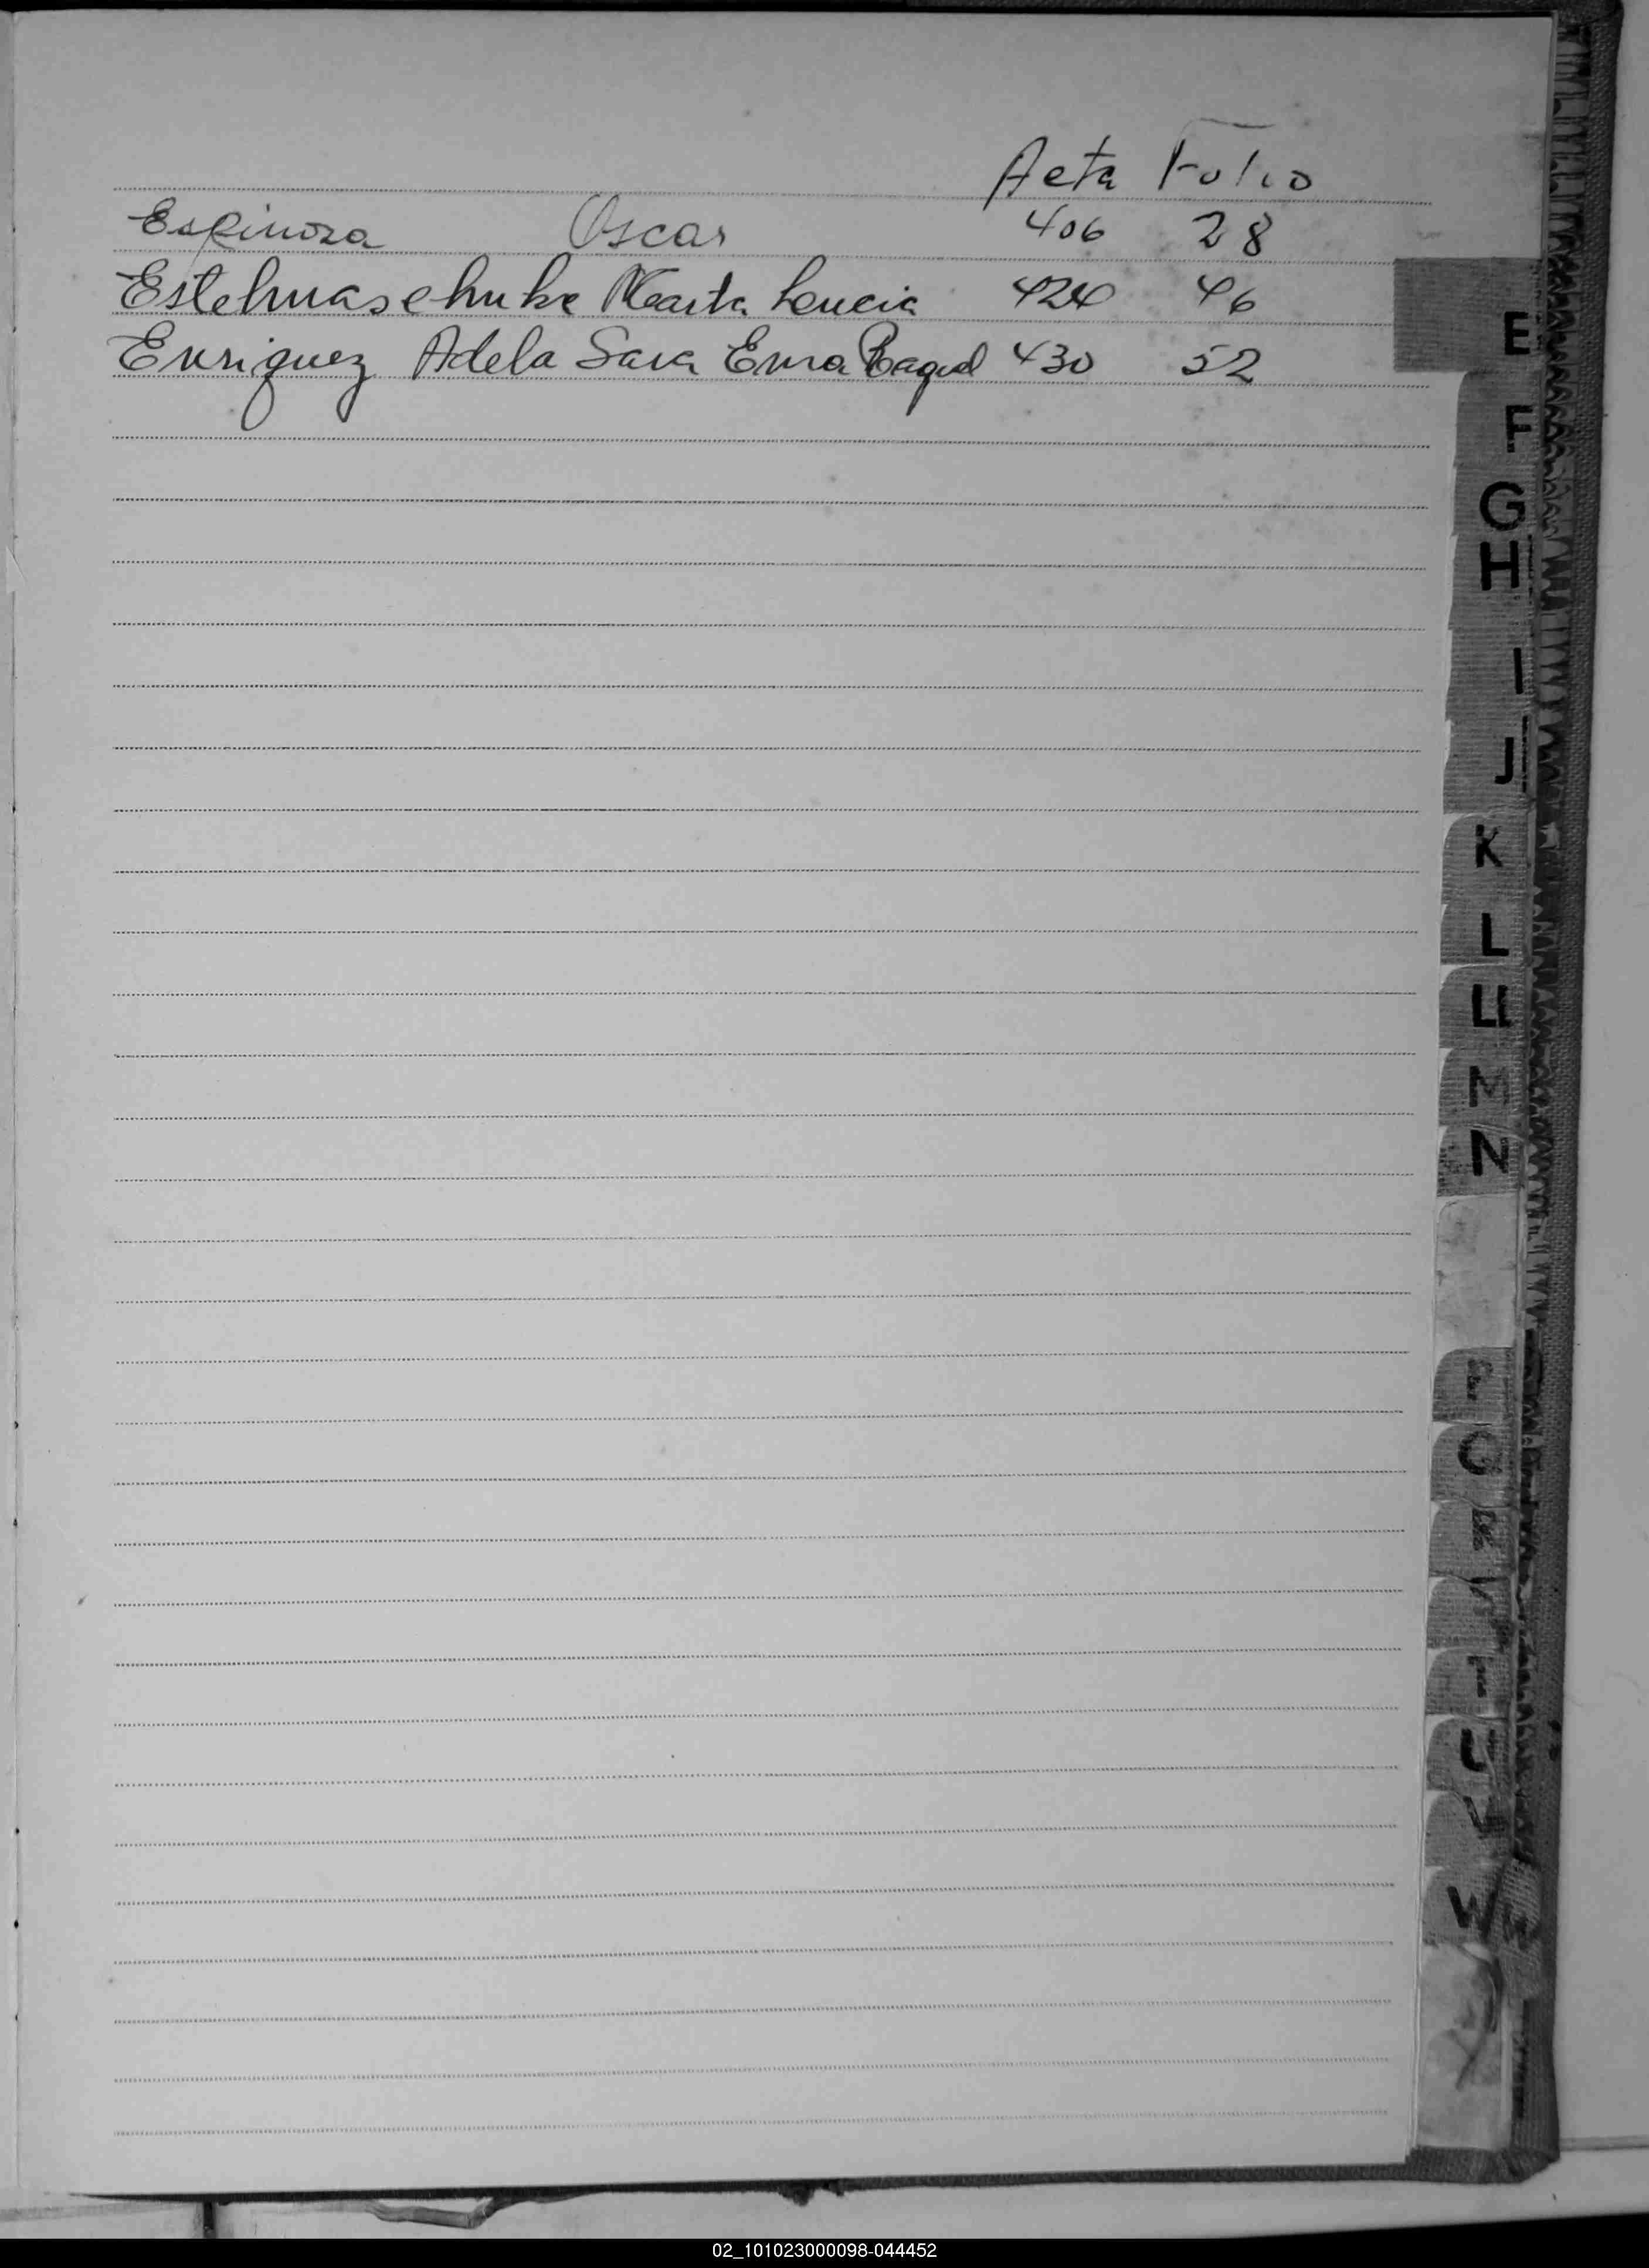 Acta Folio
Espinoza Oscar 406 28
Estelmaschuke Marta Lucia 424 46
Enriquez Adela Sara Ema Raquel 430 52
E
F
G
H
I
J
K
L
LL
M
N
P
Q
T
U
V
W
02_101023000098-044452